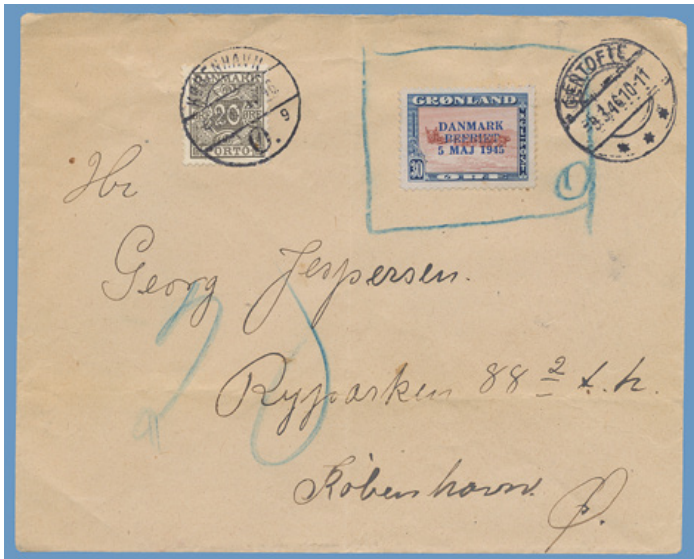 KØBENHAVN
9
DANMARK
20 ØRE
PORTO
GRØNLAND
DANMARK
BEFRIET
5 MAJ 1945
30
ØRE
GENTOFTE
9.3.46.10-11
Hr
Georg Jespersen.
Ryparken 88 2 t.h.
København Ø.